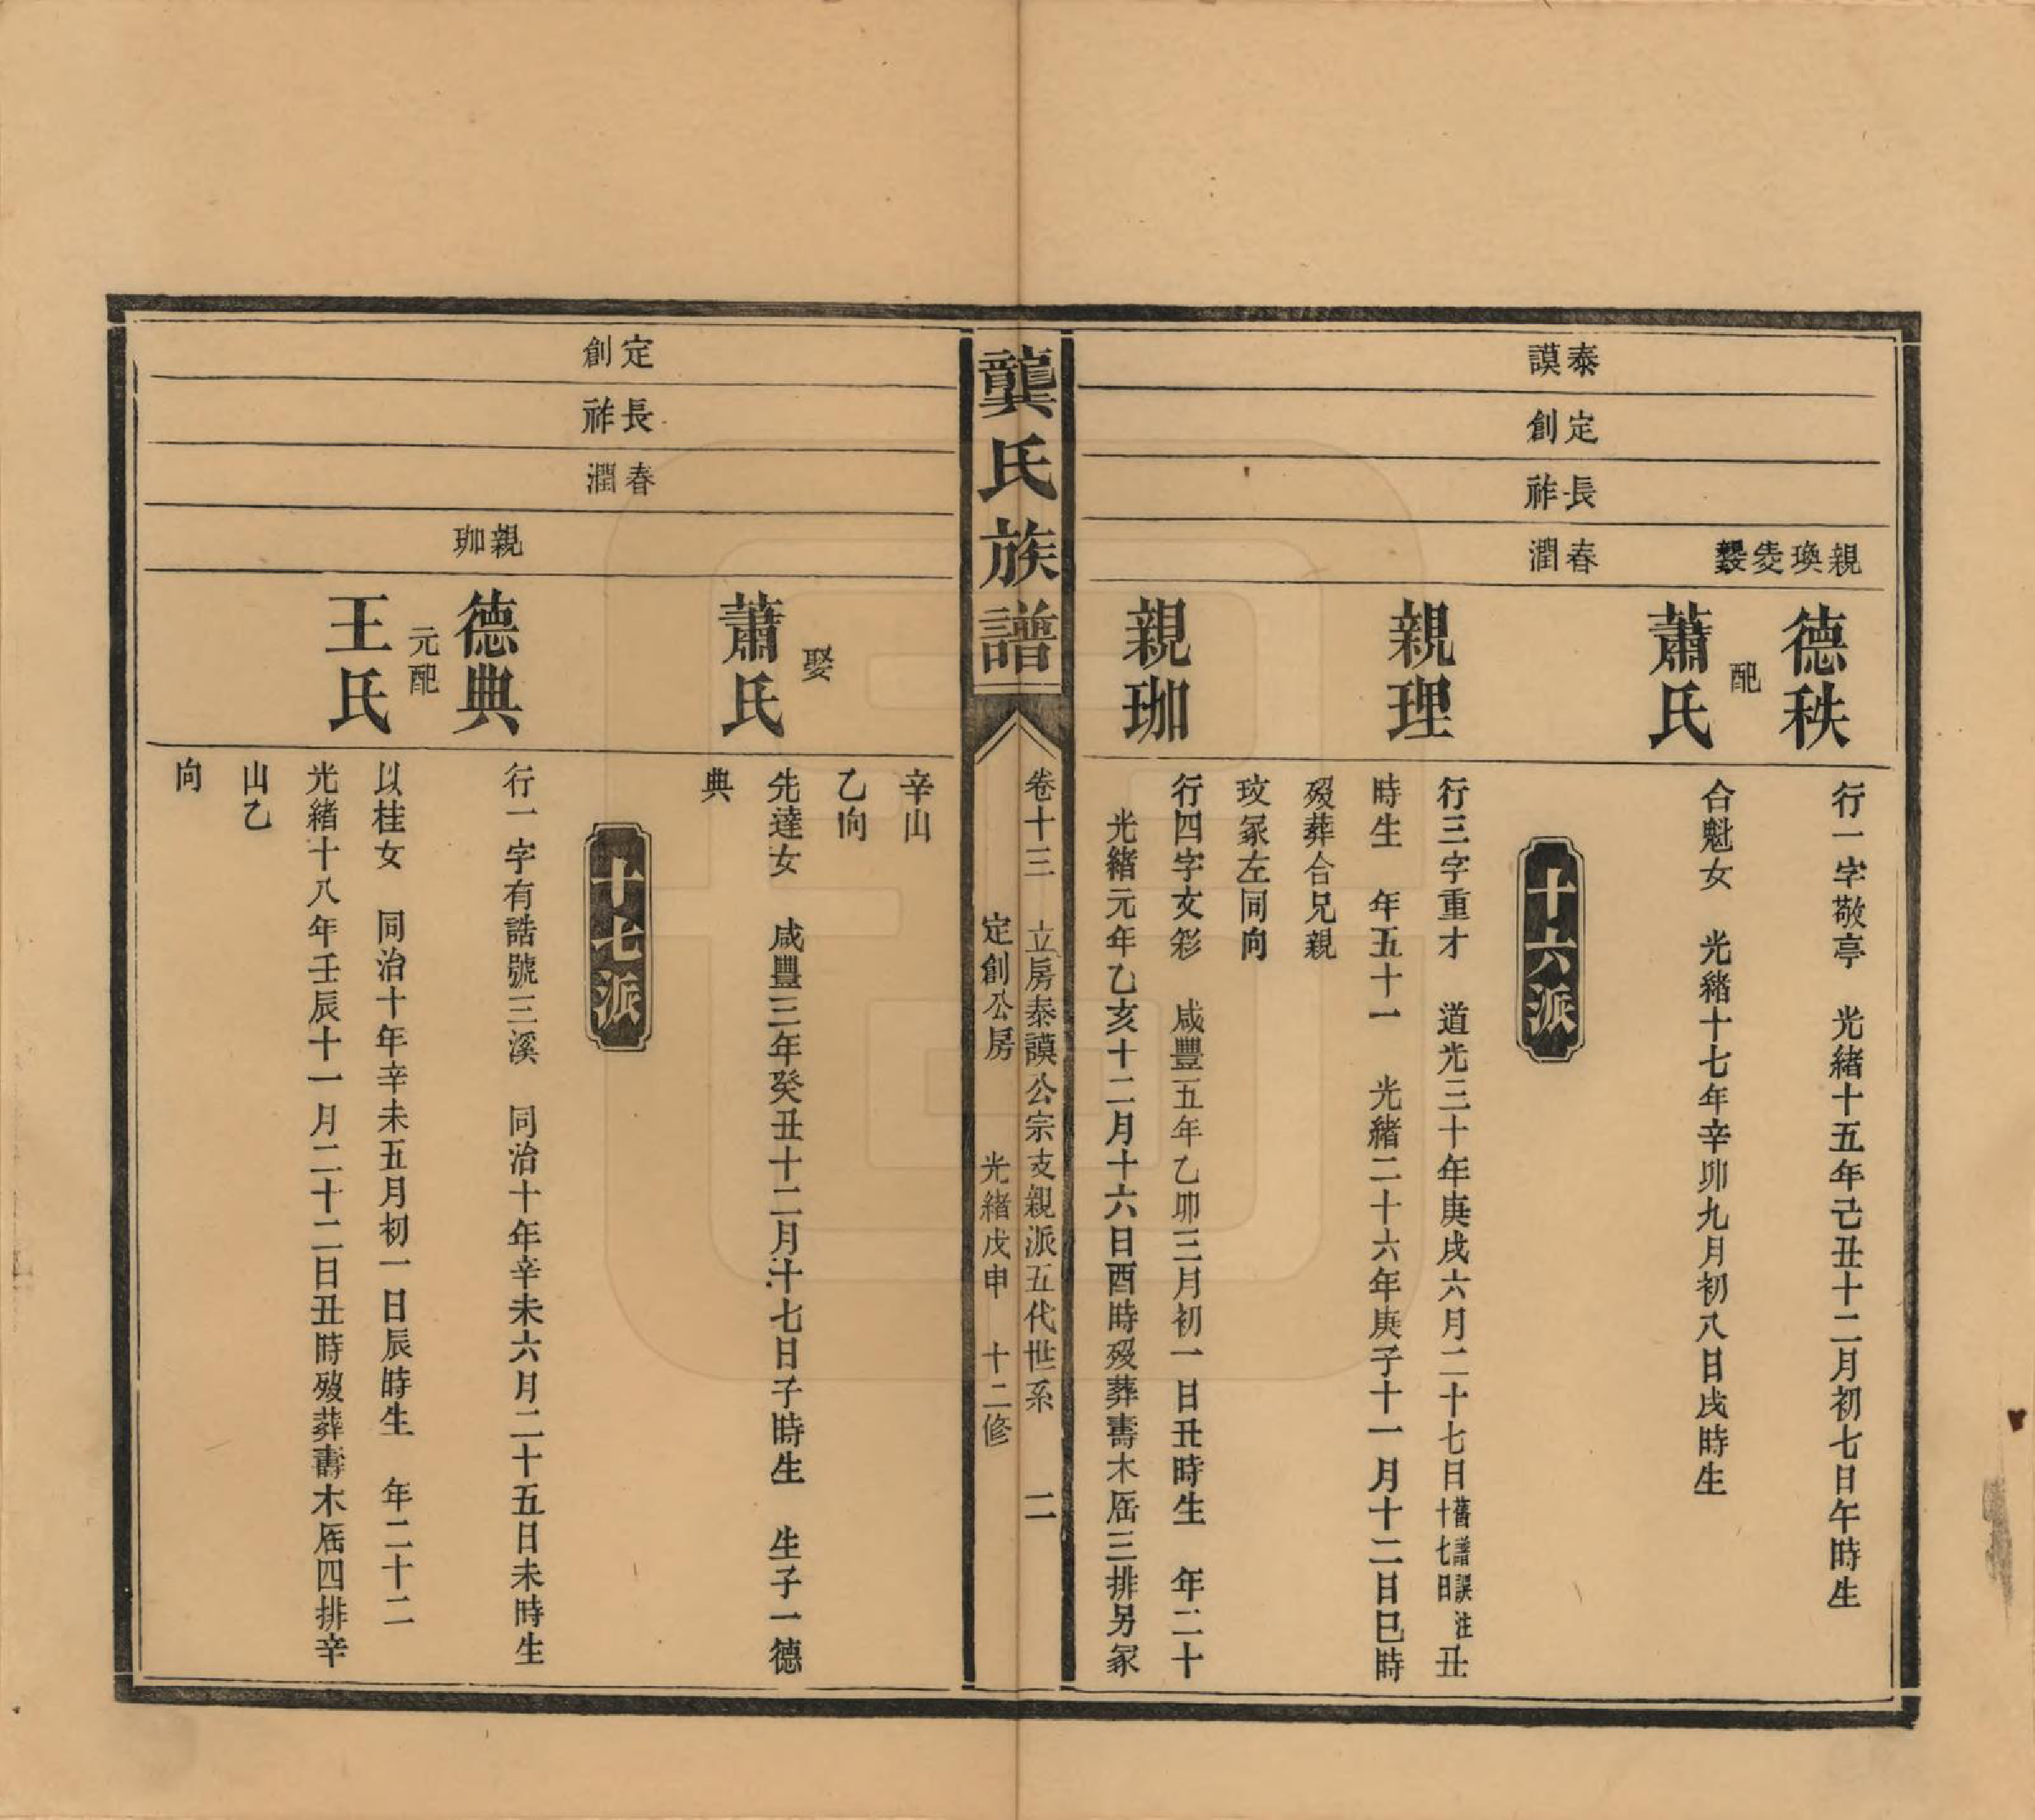 親瑗
德秩
行一字敬亭　光緒十五年己丑十二月初七日午時生
配
蕭氏
合魁女　光緒十七年辛卯九月初八日戌時生
泰謨
定創
長祚
春潤
十六派
親理
行三字重才　道光三十年庚戌六月二十七日舊譜誤注十七日丑
時生　年五十一　光緒二十六年庚子十一月十二日巳時
歿葬合兄親
玟冢左同向
親珈
行四字文彩　咸豐五年乙卯三月初一日丑時生　年二十
光緒元年乙亥十二月十六日酉時歿葬壽木厒三排另冢
龔氏族譜
卷十三　立房泰謨公宗支親派五代世系　二
定創公房　光緒戊申　十二修
辛山
乙向
娶
蕭氏
先達女　咸豐三年癸丑十二月十七日子時生　生子一德
典
定創
長祚
春潤
十七派
親珈
德典
行一字有誥號三溪　同治十年辛未六月二十五日未時生
元配
王氏
以桂女　同治十年辛未五月初一日辰時生　年二十二
光緒十八年壬辰十一月二十二日丑時歿葬壽木厒四排辛
山乙
向